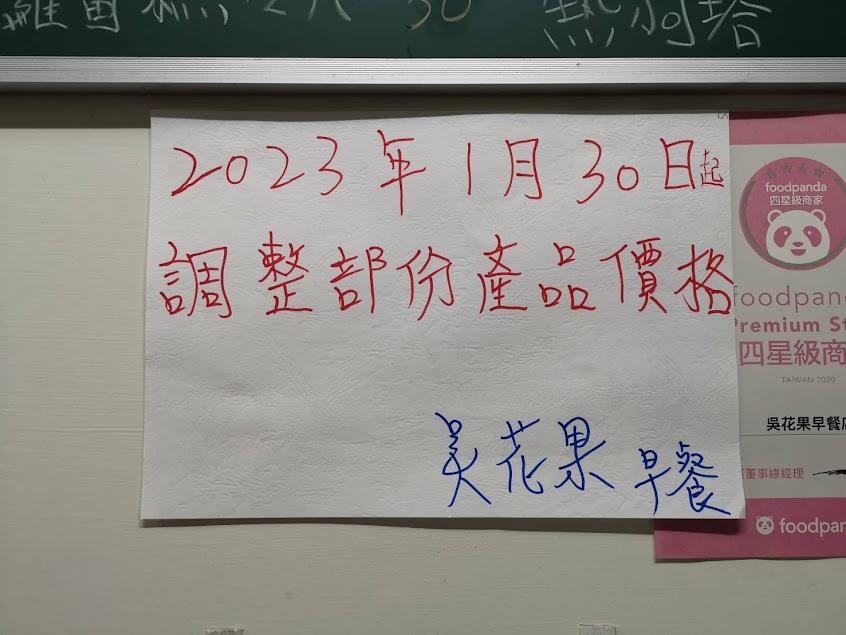 30
2023年1月30日起
調整部份產品價格
吳花果 早餐
foodpanda
四星級商家
foodpan
Premium St
四星級商
TAIWAN 2020
吳花果早餐店
董事總經理
foodpan